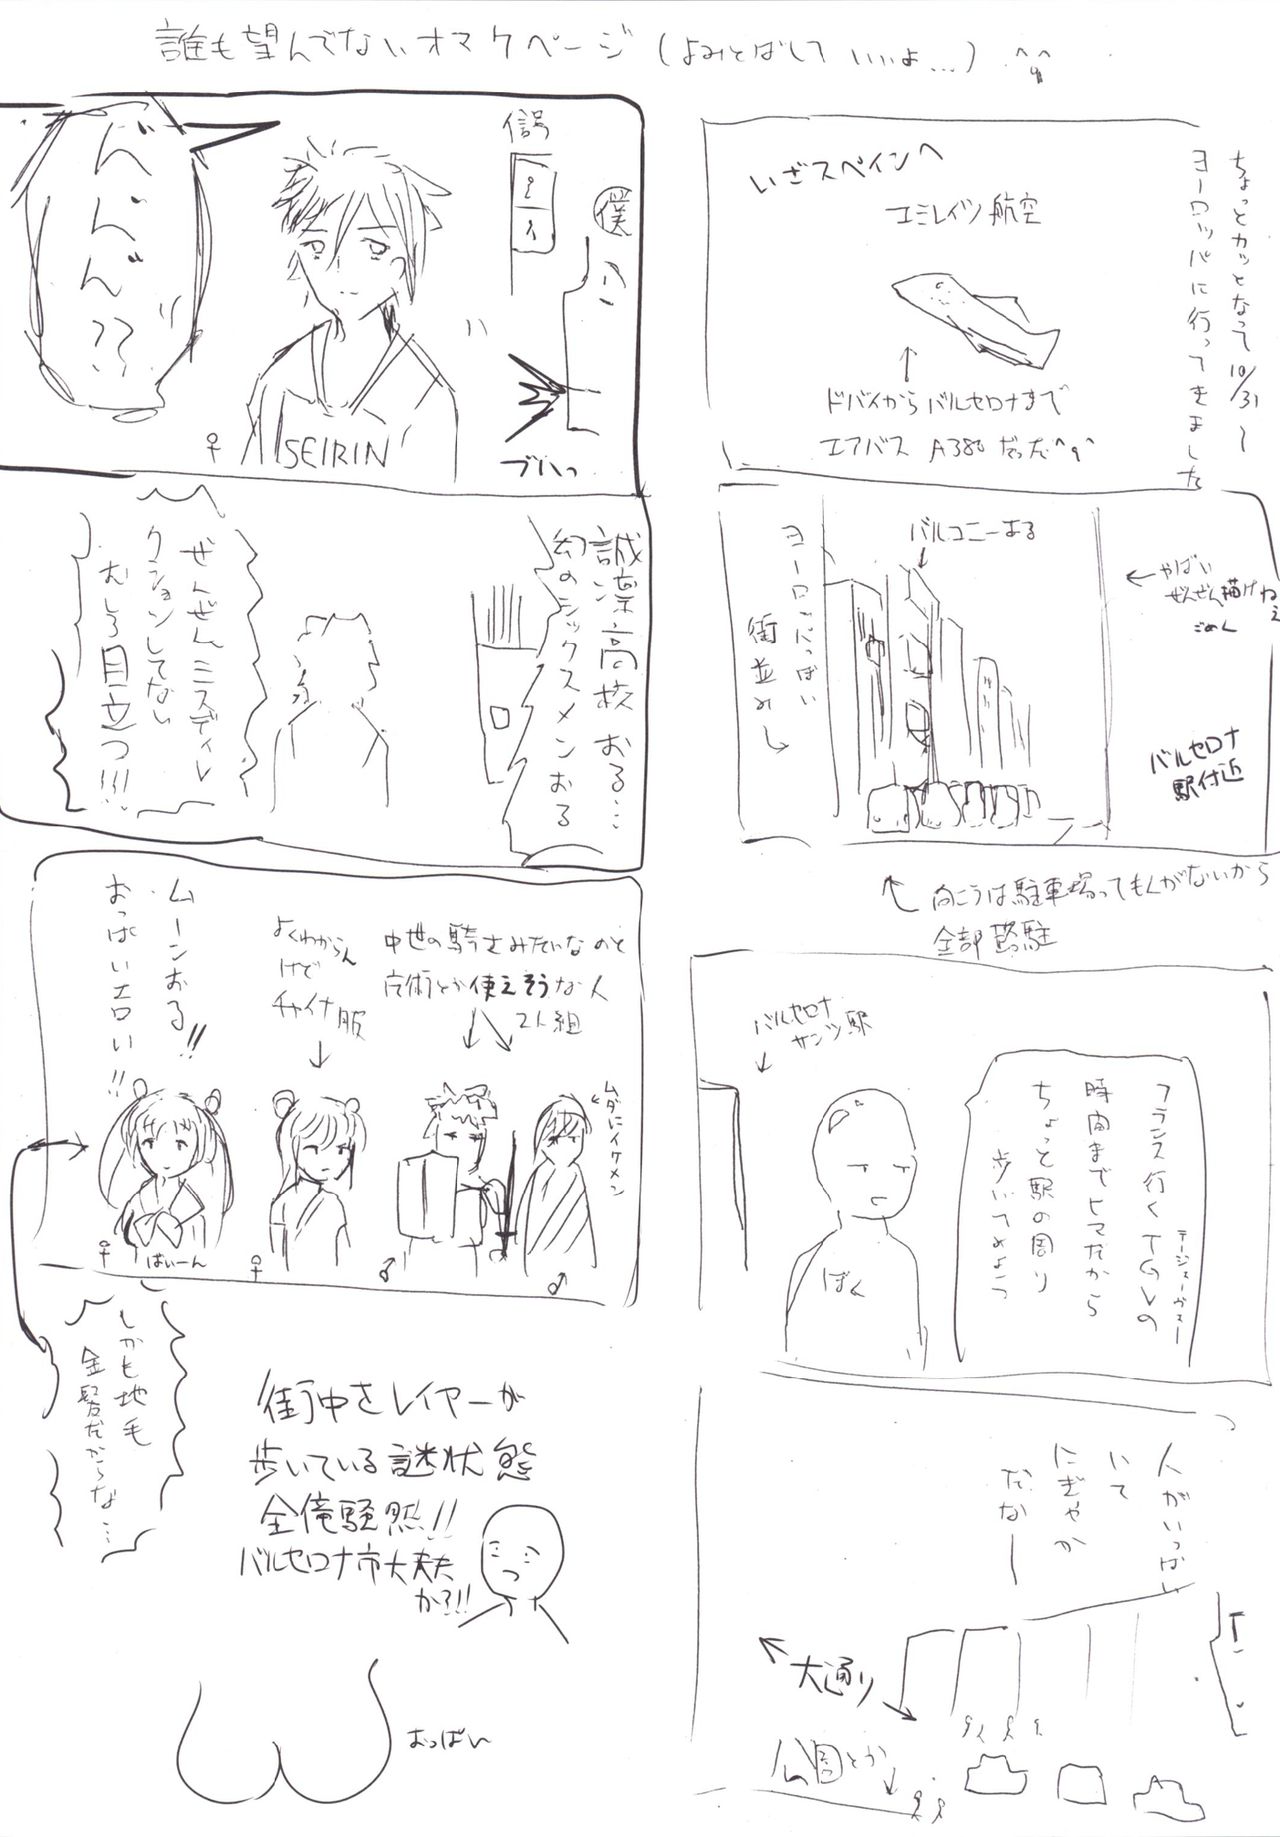 誰も望んでないオマケページ(よみとばしていいよ…)
ちょっとカッとなって10/31〜
ヨーロッパに行ってきました
いざスペインへ
エミレイツ航空
ドバイからバルセロナまで
エアバス A380だった
ヨーロっぱっぽい
街並み
バルコニーある
やばい
ぜんぜん描けねえ
ごめん
バルセロナ
駅付近
向こうは駐車場ってもんがないから
全部路駐
バルセロナ
サンツ駅
フランス行くTGVの
テージェーヴェー
時間までヒマだから
ちょっと駅の周り
歩いてみよっ
ぼく
人がいっぱい
いて
にぎやか
だなー
大通り
公園とか
信号
僕
べんべん??
SEIRIN
♀
ブハっ
誠凛高校おる…
幻のシックスメンおる
ぜんぜんミスディレ
クションしてない
むしろ目立つ!!!
中世の騎士みたいなのと
魔術とか使えそうな人
2人組
よくわからん
けど
チャイナ服
ムーンおる!!
おっぱいエロい!!
ムダにイケメン
ばいーん
♀
♀
♂
♂
しかも地毛
金髪だからな…
街中をレイヤーが
歩いている謎状態
全俺騒然!!
バルセロナ市大丈夫
か?!!
おっぱい